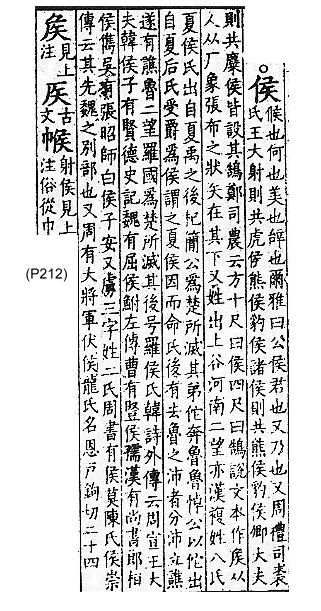 侯
候也何也美也辭也爾雅曰公侯君也又乃也又周禮司裘
氏王大射則共虎侯熊侯豹侯諸侯則共熊侯豹侯卿大夫
則共麋侯皆設其鵠鄭司農云方十尺曰侯四尺曰鵠說文本作矦从
人从厂象張布之狀矢在其下又姓出上谷河南二望亦漢複姓八氏
夏侯氏出自夏禹之後杞簡公爲楚所滅其弟佗奔魯魯悼公以佗出
自夏后氏受爵爲侯謂之夏侯因而命氏後有去魯之沛者分沛立譙
遂有譙魯二望羅國爲楚所滅其後号羅侯氏韓詩外傳云周宣王大
夫韓侯子有賢德史記魏有屈侯鮒左傳曹有豎侯獳漢有尚書郎柏
侯儁吳有張昭師白侯子安又虜三字姓二氏周書有侯莫陳氏侯崇
傳云其先魏之別部也又周有大將軍伏侯龍氏名恩戸鉤切二十四
矦
見上
注
𥎦
古
文
帿
射侯見上
注俗從巾
(P212)